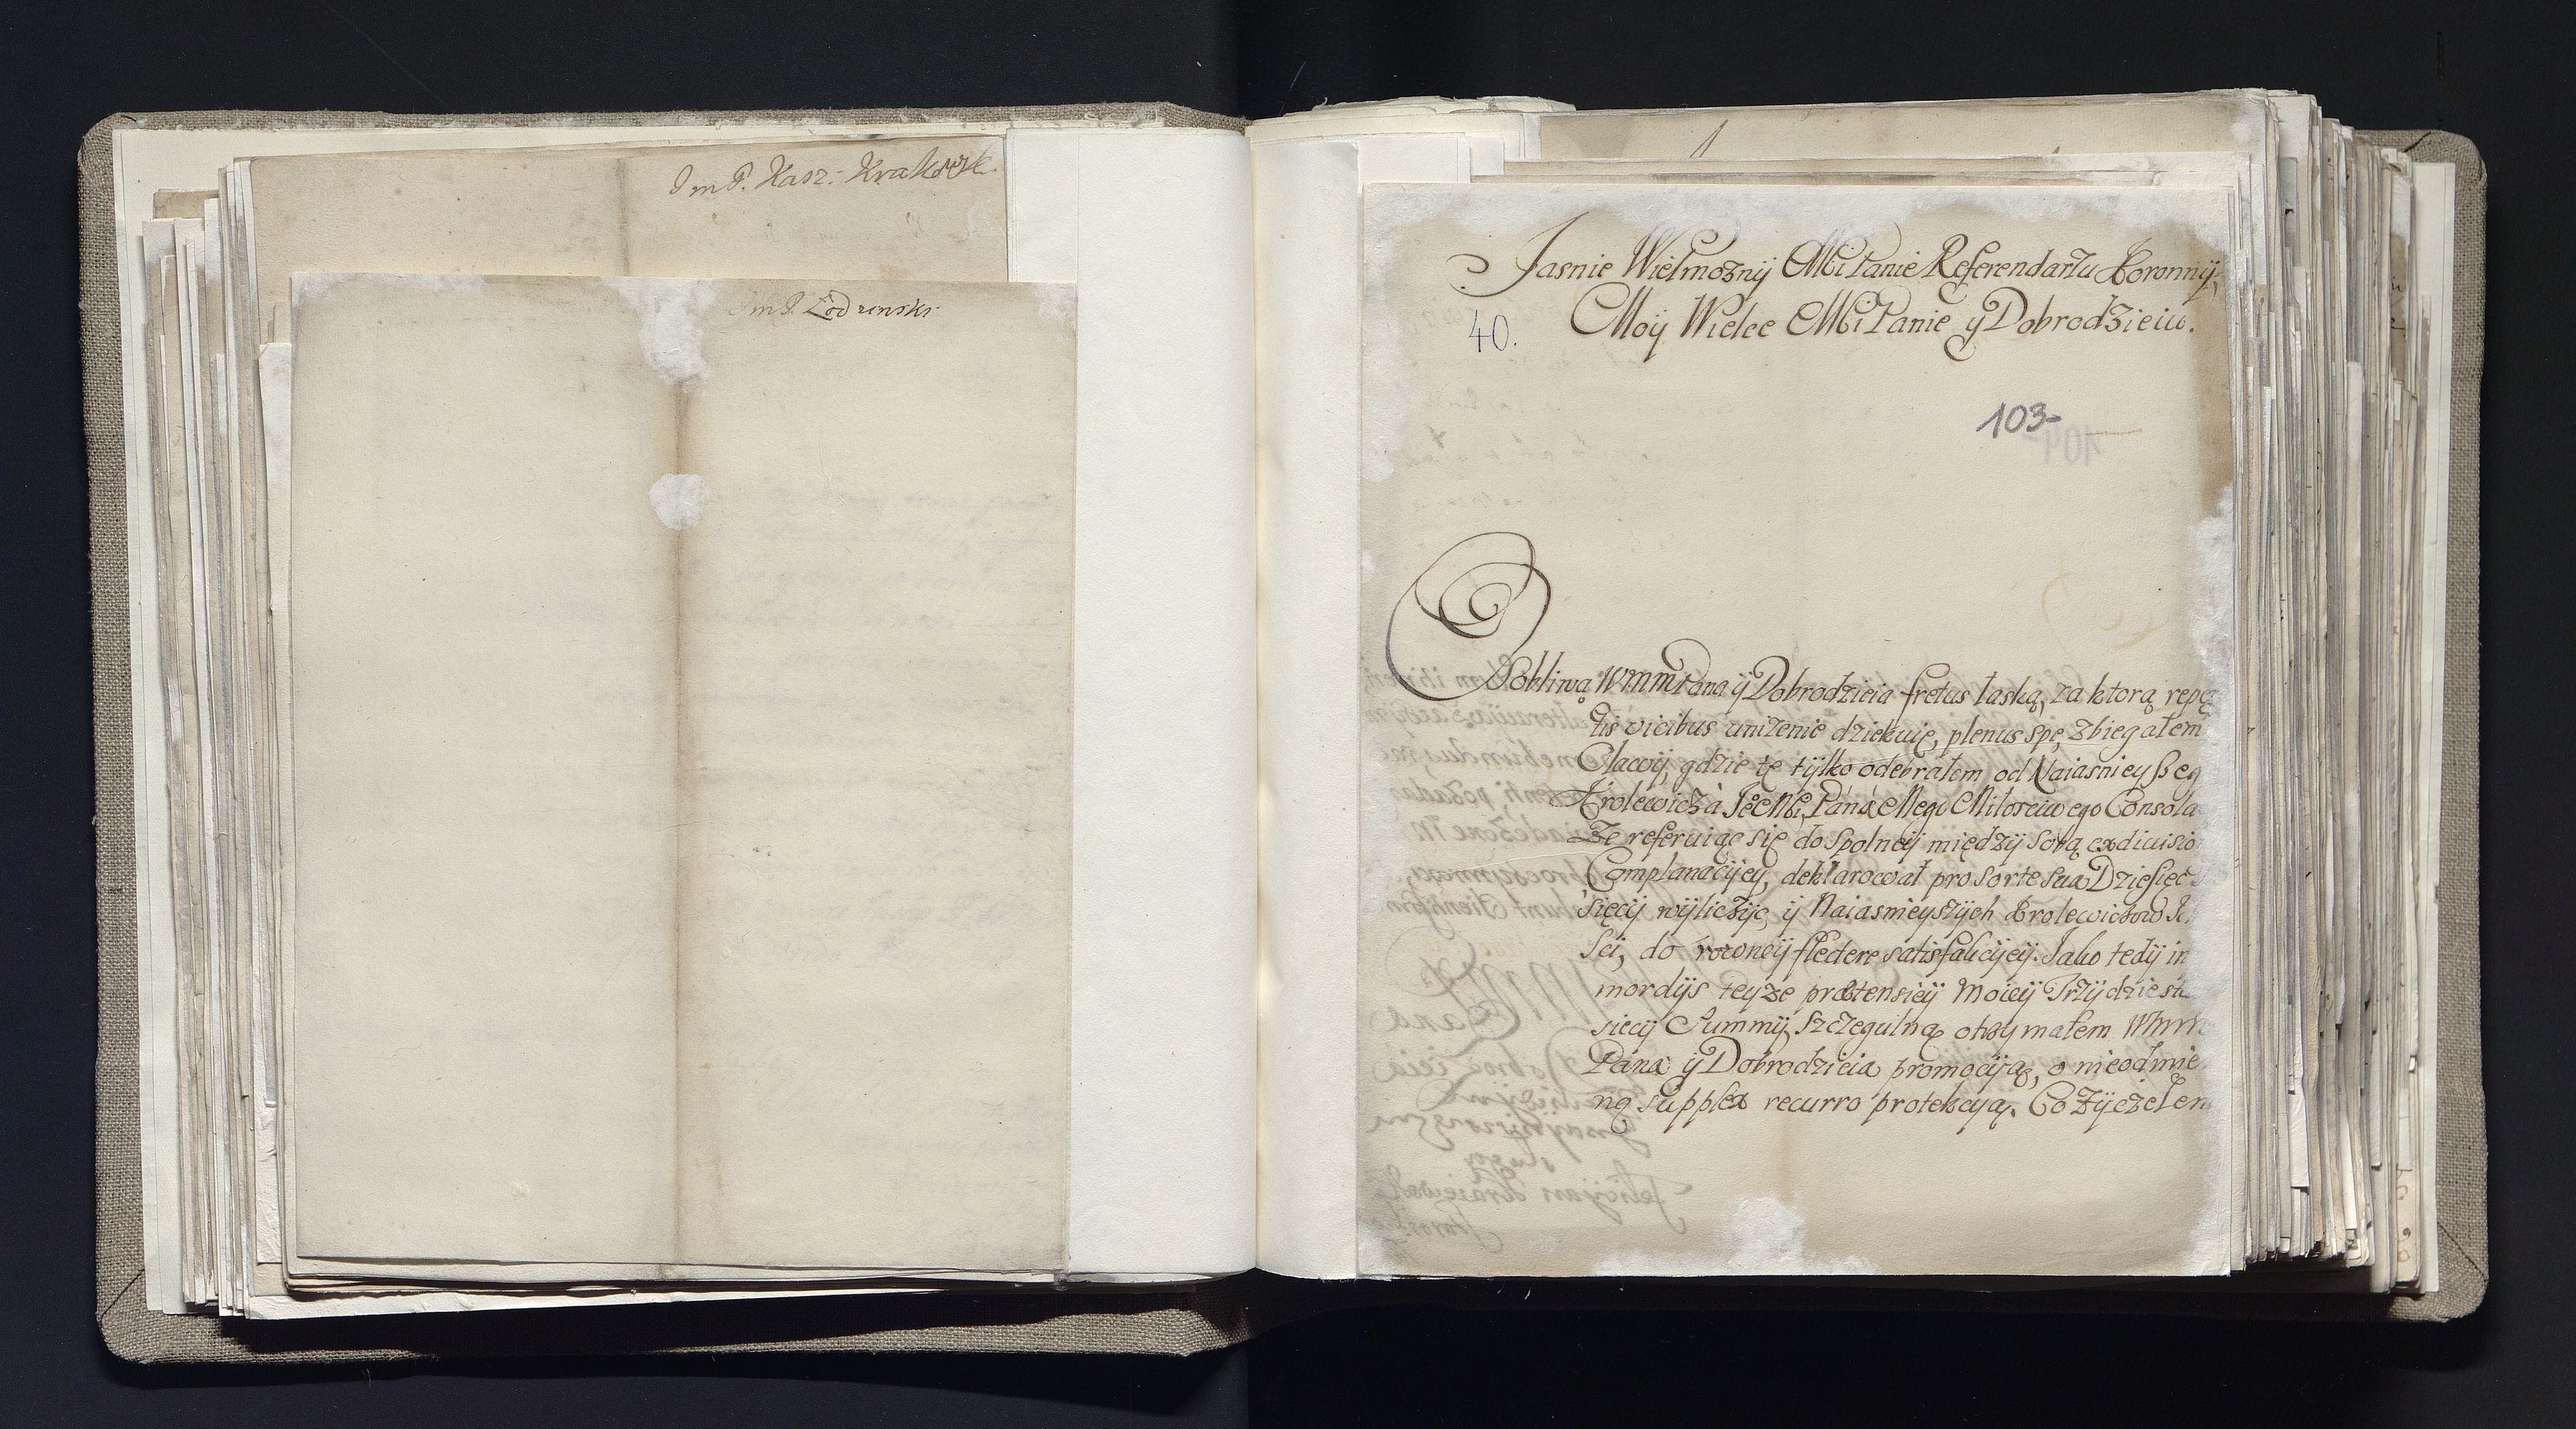 JmP. Kasz: Krakowsk.
JmP. Łodzinski
Jasnie Wielmożnÿ MCi Panie Referendarzu Koronnÿ,
40.
Moÿ Wielce MCi Panie y Dobrodzieiu.
103
Osobliwą WMM Pana ÿ Dobrodzieia fretus łaską, za ktorą repe
titis vicibus unizenie dziekuię, plenus spe, zbiegałem
Olawÿ, gdzie tę tÿlko odebrałem od Naiasnieyßeg
Krolewicza JeoMCi, Pana Mego Miłosciwego Consola
Ze referuiąc się do Spolneÿ międzÿ sobą ex diuisio
Complanacÿiey, deklarował pro sorte sua Dziesięć
sięcÿ wÿliczÿć, ÿ Naiasnieyszÿch Krolewiczow
sci, do rowneÿ flectere satisfakcÿieÿ. Jako tedÿ in
mordÿs teyże prætensieÿ Moieÿ Trzÿdziestu
sięcÿ Summÿ, szczegulną otrzymałem WMM
Pana ÿ Dobrodzieia promocÿią, o nieodmie
ną supplex recurro protekcyą. Co